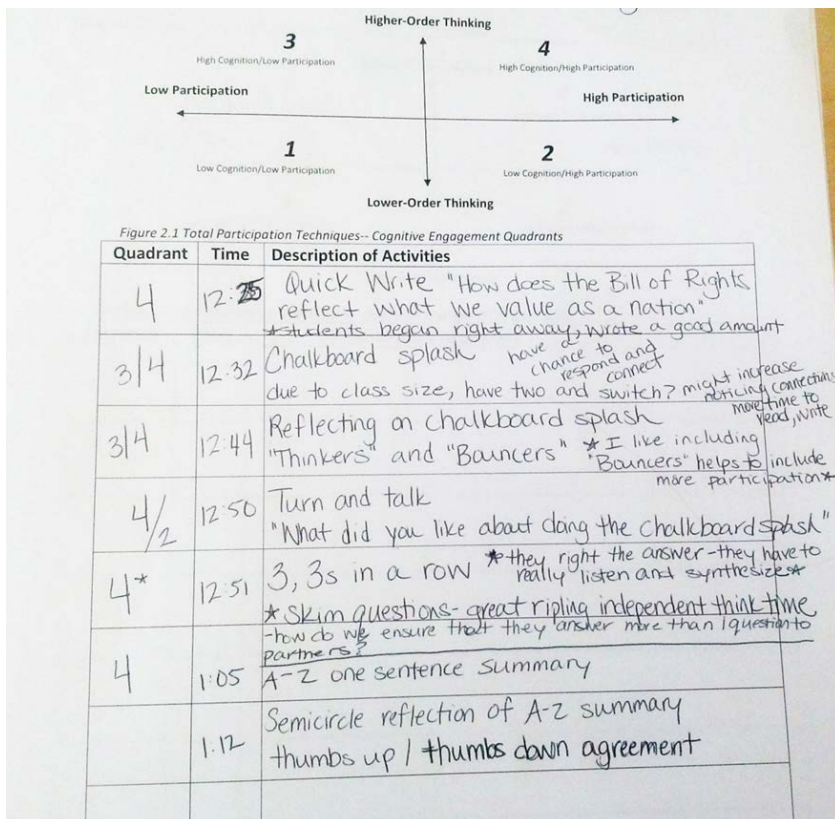 Higher-Order Thinking
3
High Cognition/Low Participation
4
High Cognition/High Participation
Low Participation
High Participation
1
Low Cognition/Low Participation
2
Low Cognition/High Participation
Lower-Order Thinking
Figure 2.1 Total Participation Techniques-- Cognitive Engagement Quadrants
Quadrant Time Description of Activities
4 12:25 Quick Write "How does the Bill of Rights
reflect what we value as a nation"
*students began right away, wrote a good amount
3/4 12:32 Chalkboard splash
have a
chance to
respond and
connect
due to class size, have two and switch? might increase
noticing connections
more time to
read, write
3/4 12:44 Reflecting on chalkboard splash
"Thinkers" and "Bouncers" * I like including
"Bouncers" helps to include
more participation*
4/2 12:50 Turn and talk
"What did you like about doing the Chalkboard splash"
4* 12:51 3, 3s in a row *they right the answer-they have to
really listen and synthesize*
* Skim questions- great ripling independent think time
-how do we ensure that they answer more than 1 question to
partners?
4 1:05 A-Z one sentence summary
1:12 Semicircle reflection of A-Z summary
thumbs up / thumbs down agreement